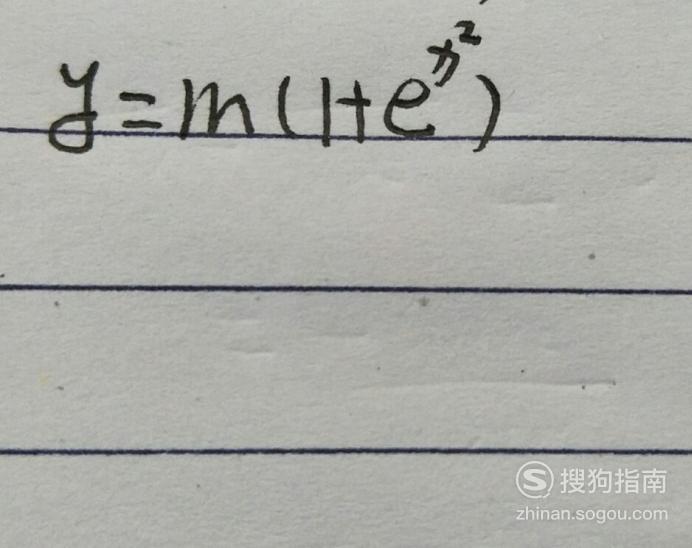 y=m(1+e^x²)
搜狗指南
zhinan.sogou.com